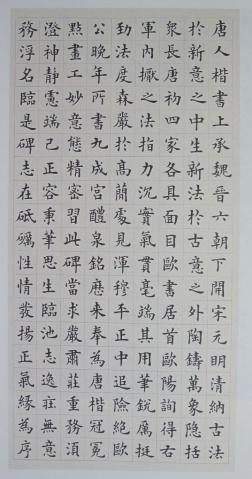 唐人楷書上承魏晉六朝下開宋元明清納古法
於新意之中生新法於古意之外陶鑄萬象隱括
衆長唐初四家各具面目歐書居首歐陽詢得右
軍內擫之法指力沉實氣貫毫端其用筆銳厲挺
勁法度森嚴於高簡處見渾穆平正中追險絕歐
公晚年所書九成宮醴泉銘歷來奉為唐楷冠冕
點畫工妙意態精密習此碑當求嚴肅莊重務須
澄神靜慮端己正容秉筆思生臨池志逸在無意
務浮名臨是碑志在砥礪性情發揚正氣緣為序